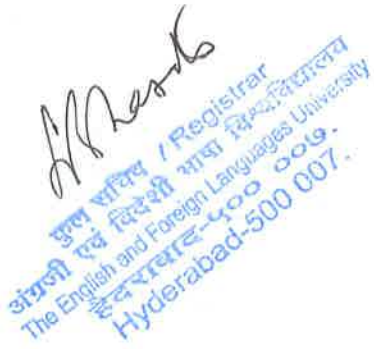 कुल सचिव / Registrar
अंग्रेजी एवं विदेशी भाषा विश्वविद्यालय
The English and Foreign Languages University
हैदराबाद-५०० ००७.
Hyderabad-500 007.